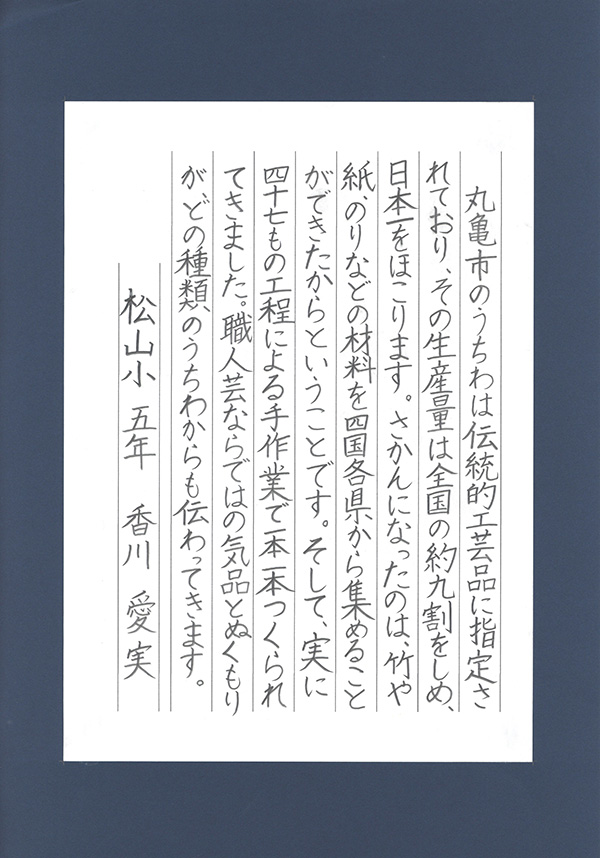 丸亀市のうちわは伝統的工芸品に指定さ
れており、その生産量は全国の約九割をしめ、
日本一をほこります。さかんになったのは、竹や
紙、のりなどの材料を四国各県から集めること
ができたからということです。そして、実に
四十七もの工程による手作業で一本一本つくられ
てきました。職人芸ならではの気品とぬくもり
が、どの種類のうちわからも伝わってきます。
松山小 五年 香川 愛実